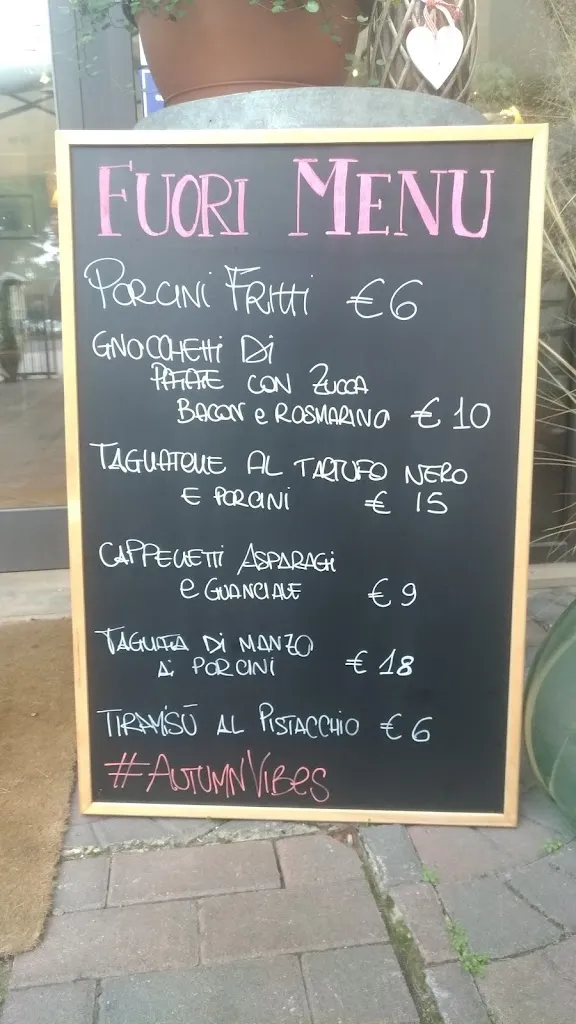 FUORI MENU
PORCINI FRITTI €6
GNOCCHETTI DI
PATATE CON ZUCCA
BACON e ROSMARINO € 10
TAGLIATELLE AL TARTUFO NERO
E PORCINI € 15
CAPPELLETTI ASPARAGI
e GUANCIALE € 9
TAGLIATA DI MANZO
Ai PORCINI € 18
TIRAMISÙ AL PISTACCHIO € 6
#AUTUMNVIBES